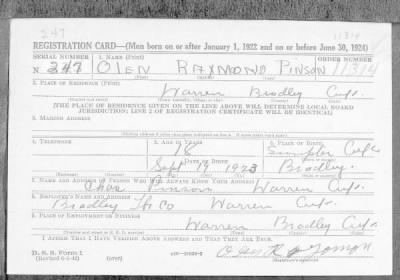 247
11314
REGISTRATION CARD—(Men born on or after January 1, 1922 and on or before June 30, 1924)
SERIAL NUMBER 1. NAME (Print) ORDER NUMBER
N 247 OLEN RAYMOND PINSON 11314
(First) (Middle) (Last)
2. PLACE OF RESIDENCE (Print)
Warren Bradley
[THE PLACE OF RESIDENCE GIVEN ON THE LINE ABOVE WILL DETERMINE LOCAL BOARD
JURISDICTION; LINE 2 OF REGISTRATION CERTIFICATE WILL BE IDENTICAL]
3. MAILING ADDRESS
4. TELEPHONE 5. AGE IN YEARS 6. PLACE OF BIRTH
18
DATE OF BIRTH
Sept 17 1923 Bradley
7. NAME AND ADDRESS OF PERSON WHO WILL ALWAYS KNOW YOUR ADDRESS
Chas Pinson Warren
8. EMPLOYER'S NAME AND ADDRESS
Bradley Co Warren
9. PLACE OF EMPLOYMENT OR BUSINESS
Warren Bradley
I AFFIRM THAT I HAVE VERIFIED ABOVE ANSWERS AND THAT THEY ARE TRUE.
D. S. S. Form 1
(Revised 6-9-42)